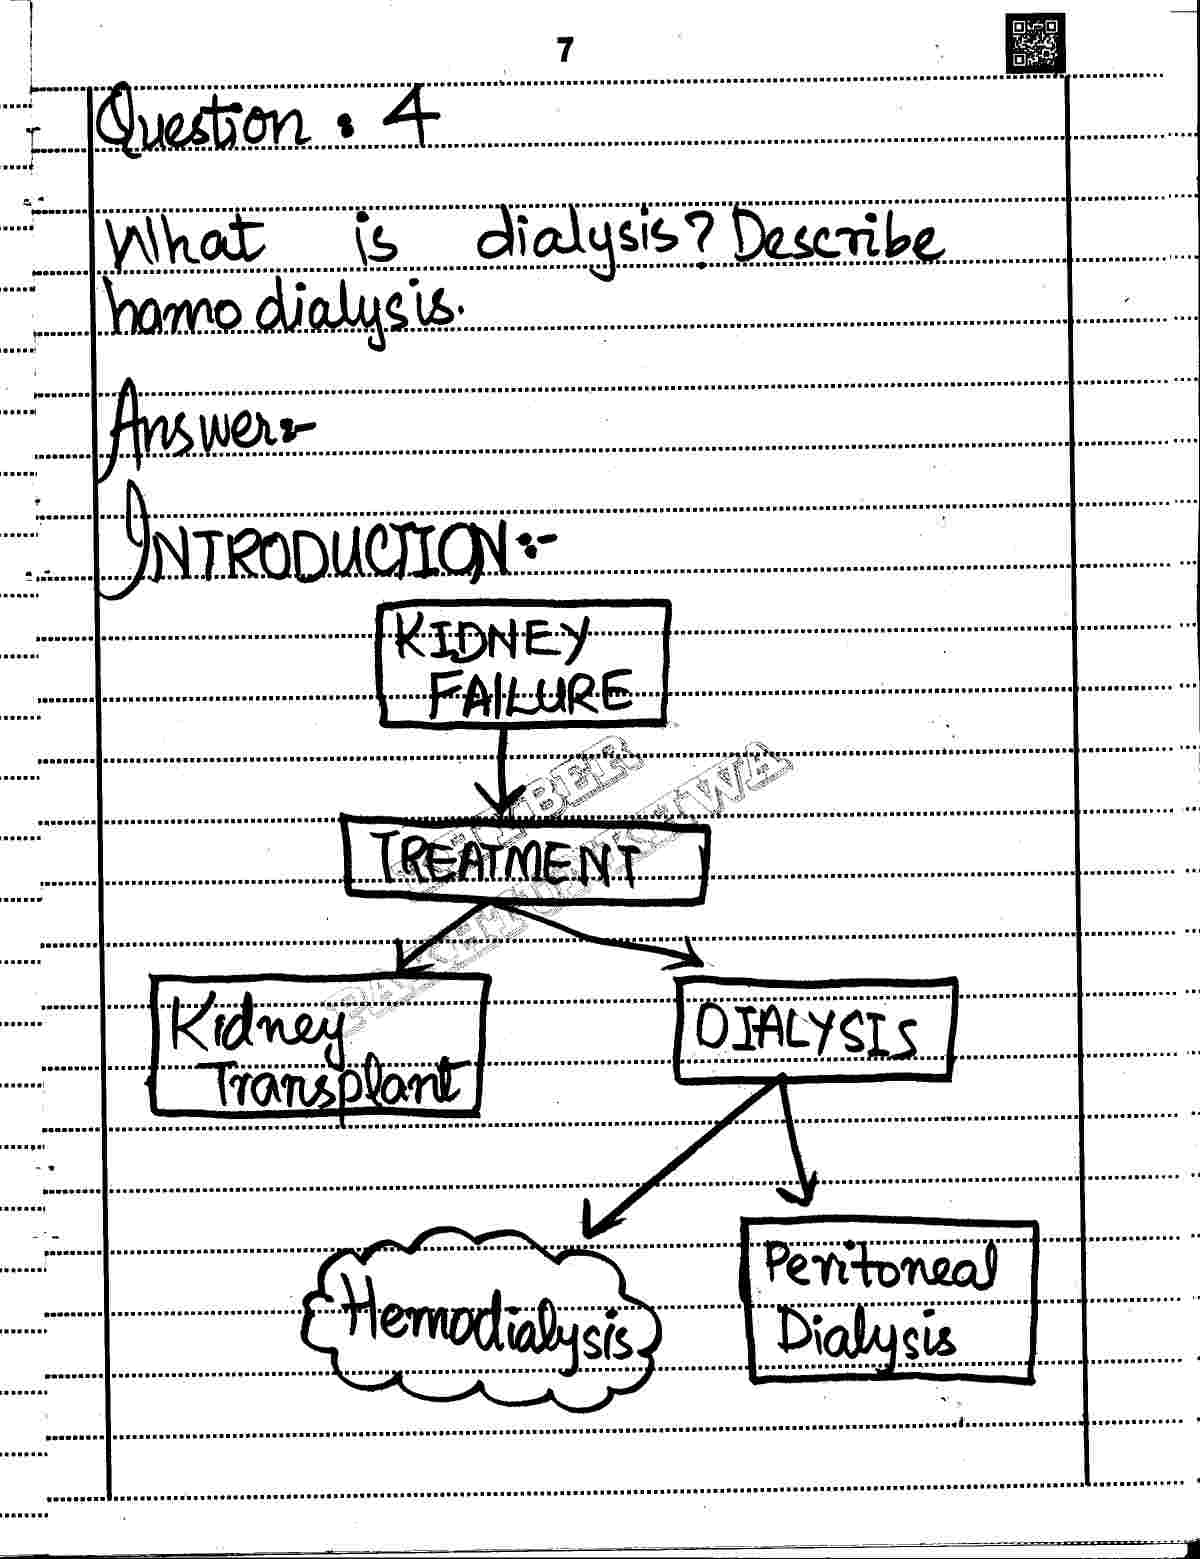 7
Question : 4
What is dialysis? Describe
hamodialysis.
Answer:-
INTRODUCTION:-
KIDNEY
FAILURE
TREATMENT
Kidney
Transplant
DIALYSIS
Hemodialysis
Peritoneal
Dialysis